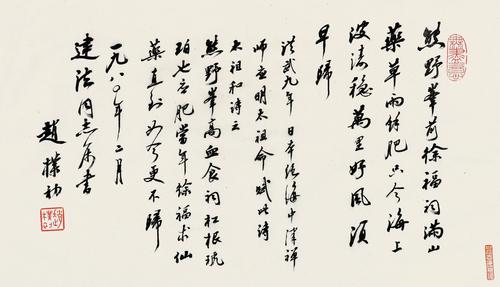 熊野峯前徐福祠满山
药草雨馀肥只今海上
波涛稳万里好风须
早归
洪武九年日本绝海中津禅
师应明太祖命赋此诗
太祖和诗云
熊野峯高血食祠松根琥
珀也应肥当年徐福求仙
药直到如今更不归
一九八〇年二月
建法同志属书
赵朴初